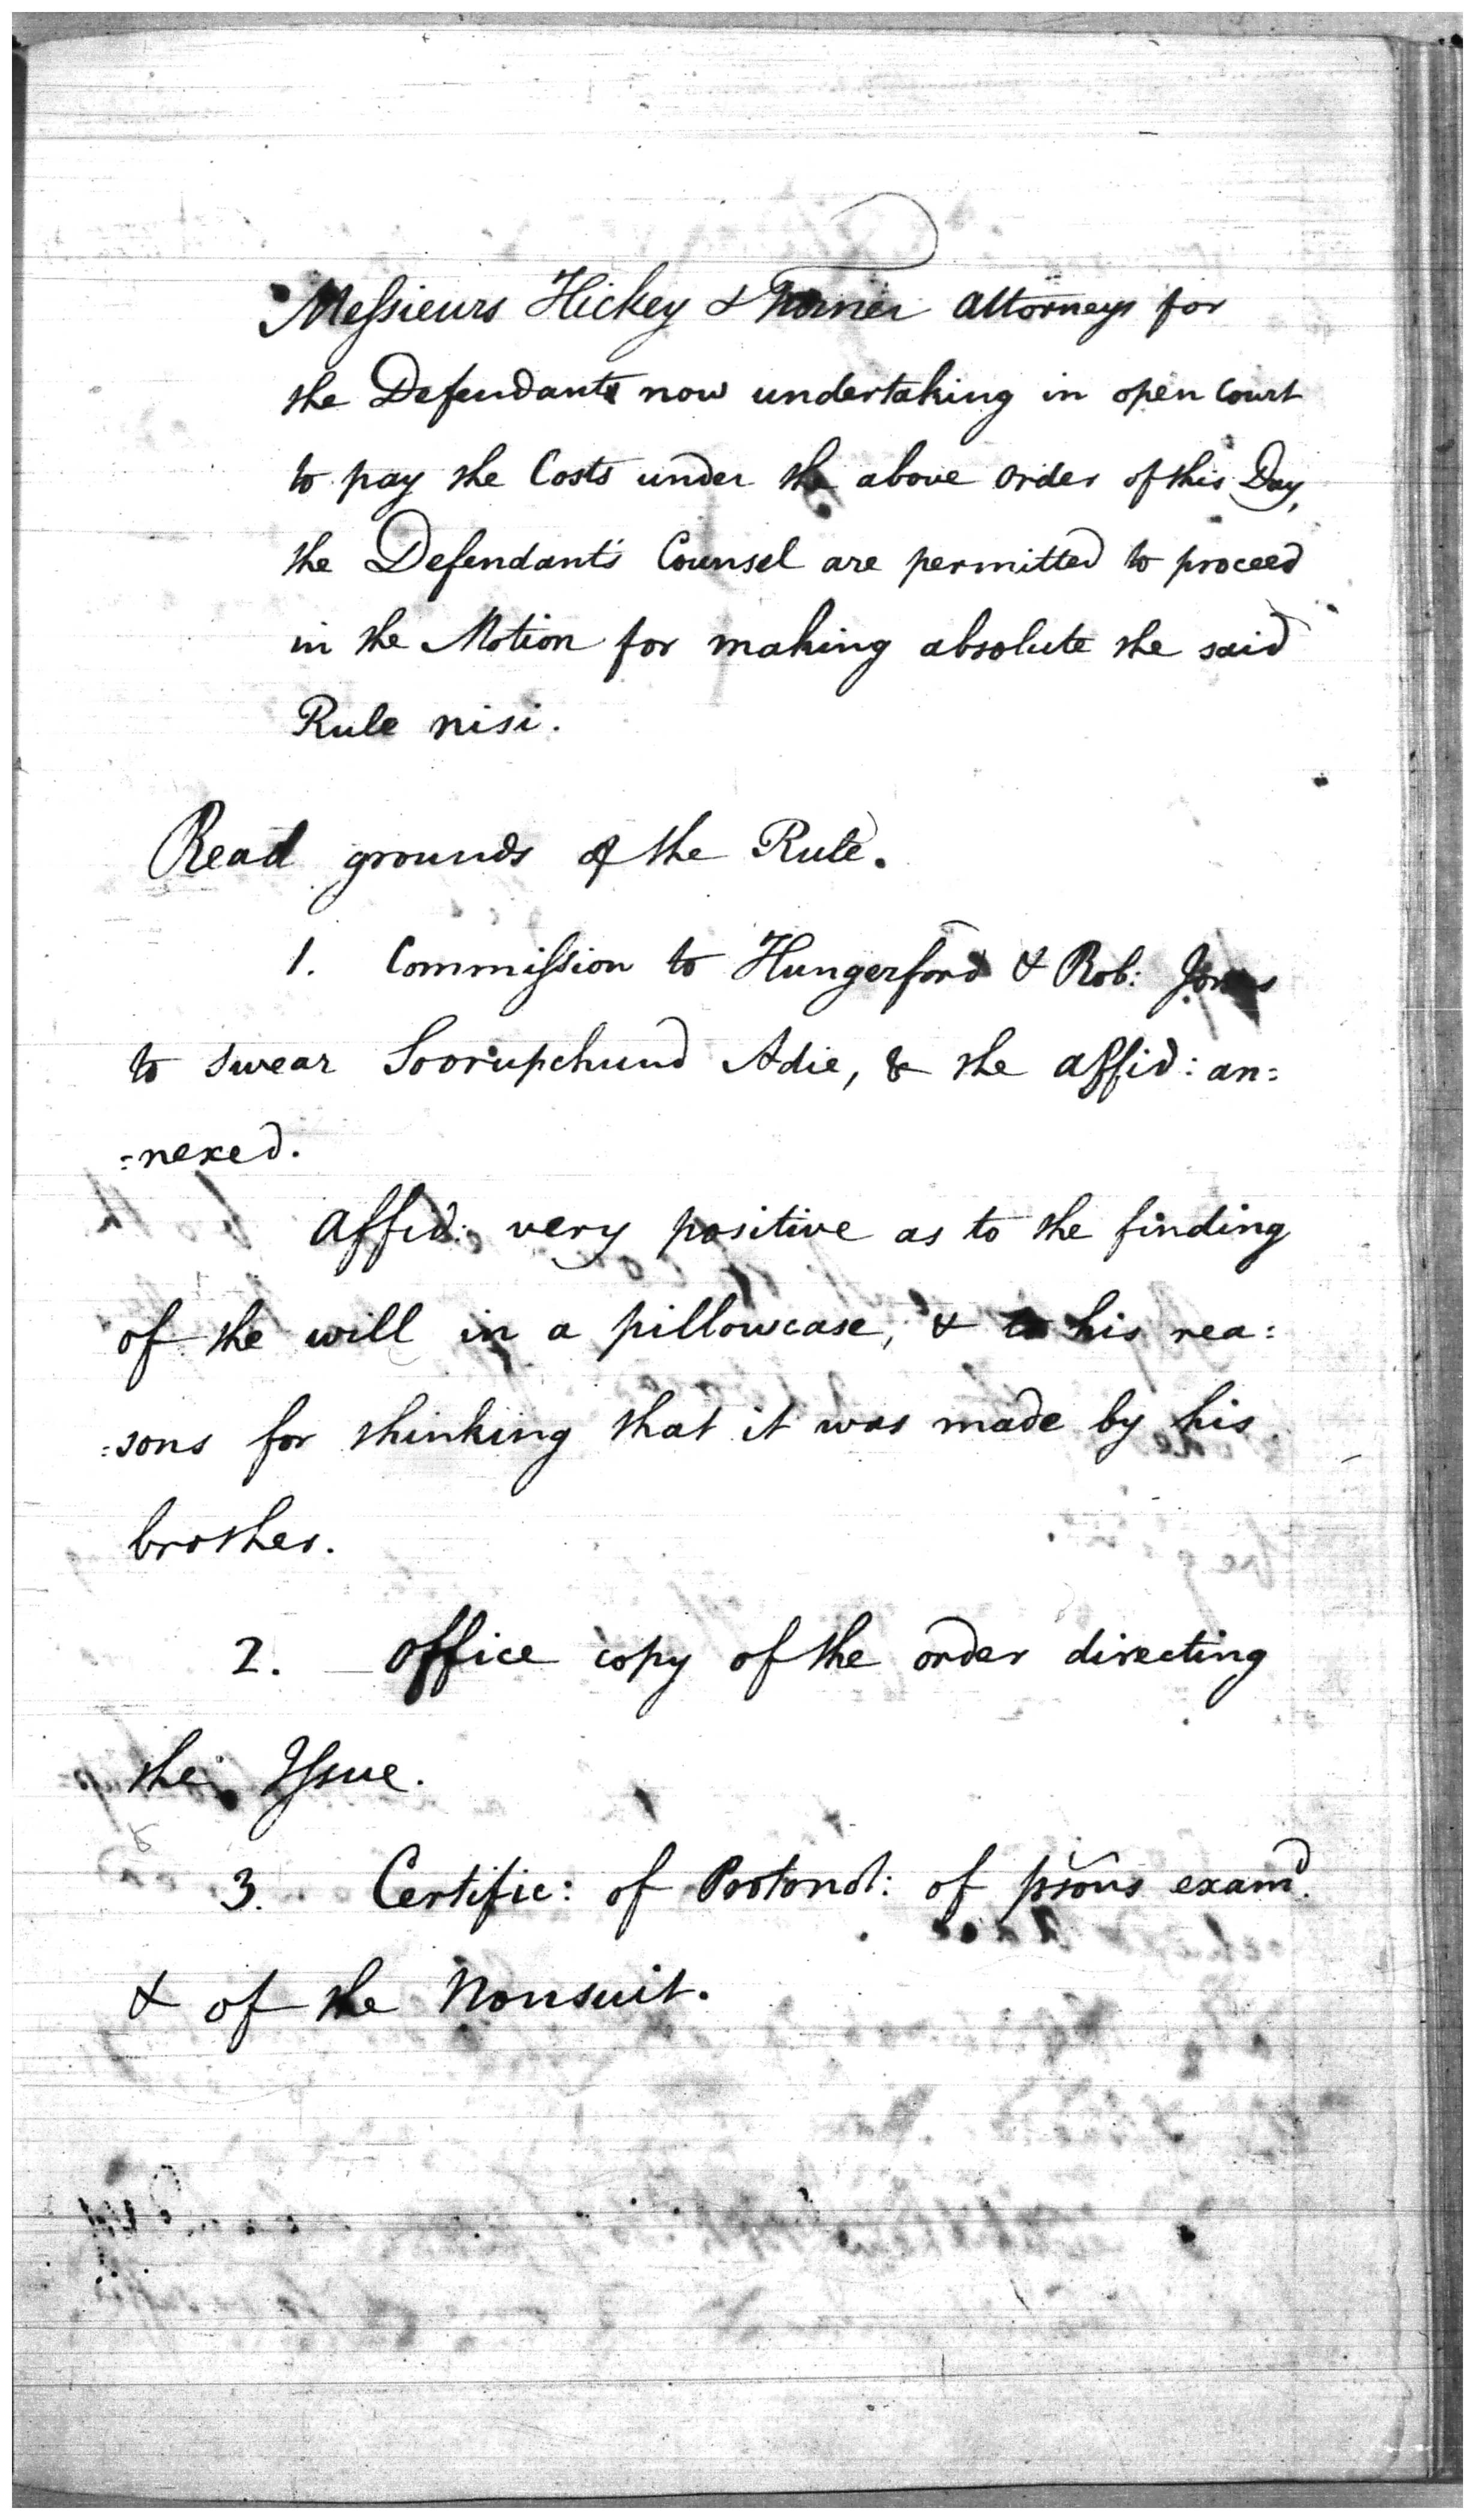 Messieurs Hickey & Turner Attorneys for
the Defendants now undertaking in open Court
to pay the Costs under the above order of this Day,
the Defendant's Counsel are permitted to proceed
in the Motion for making absolute the said
Rule nisi.
Read grounds of the Rule.
1. Commission to Hungerford & Rob: Jones
to swear Soorupchund Adie, & the affid: an=
=nexed.
Affid: very positive as to the finding
of the will in a pillowcase, & to his rea=
=sons for thinking that it was made by his
brother.
2. Office copy of the order directing
the Issue.
3. Certific: of Protonot: of p̃sons examd.
& of the Nonsuit.